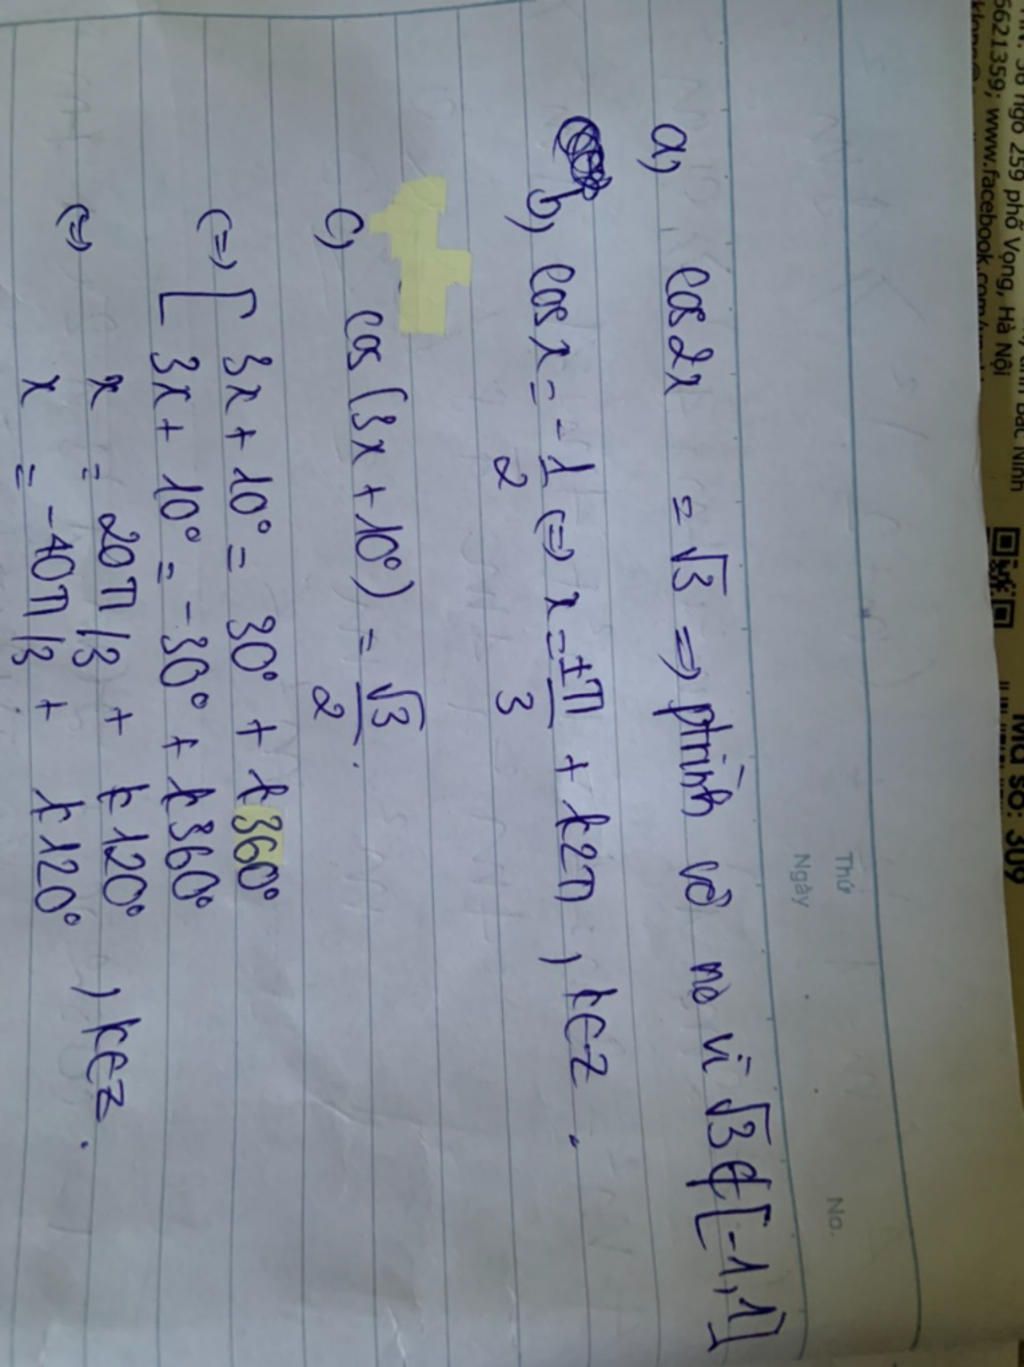 56 ngõ 259 phố Vọng, Hà Nội
5621359; www.facebook.com
Mã số: 309
Thứ
Ngày
No.
a, cos2x = √3 => ptrình vô no vì √3 ∉ [-1,1]
b, cos x = -1/2 <=> x = ±π/3 + k2π, k∈Z.
c, cos(3x + 10°) = √3/2.
<=> [ 3x + 10° = 30° + k360°
3x + 10° = -30° + k360°
<=> x = 20π/3 + k120°
x = -40π/3 + k120° , k∈Z.